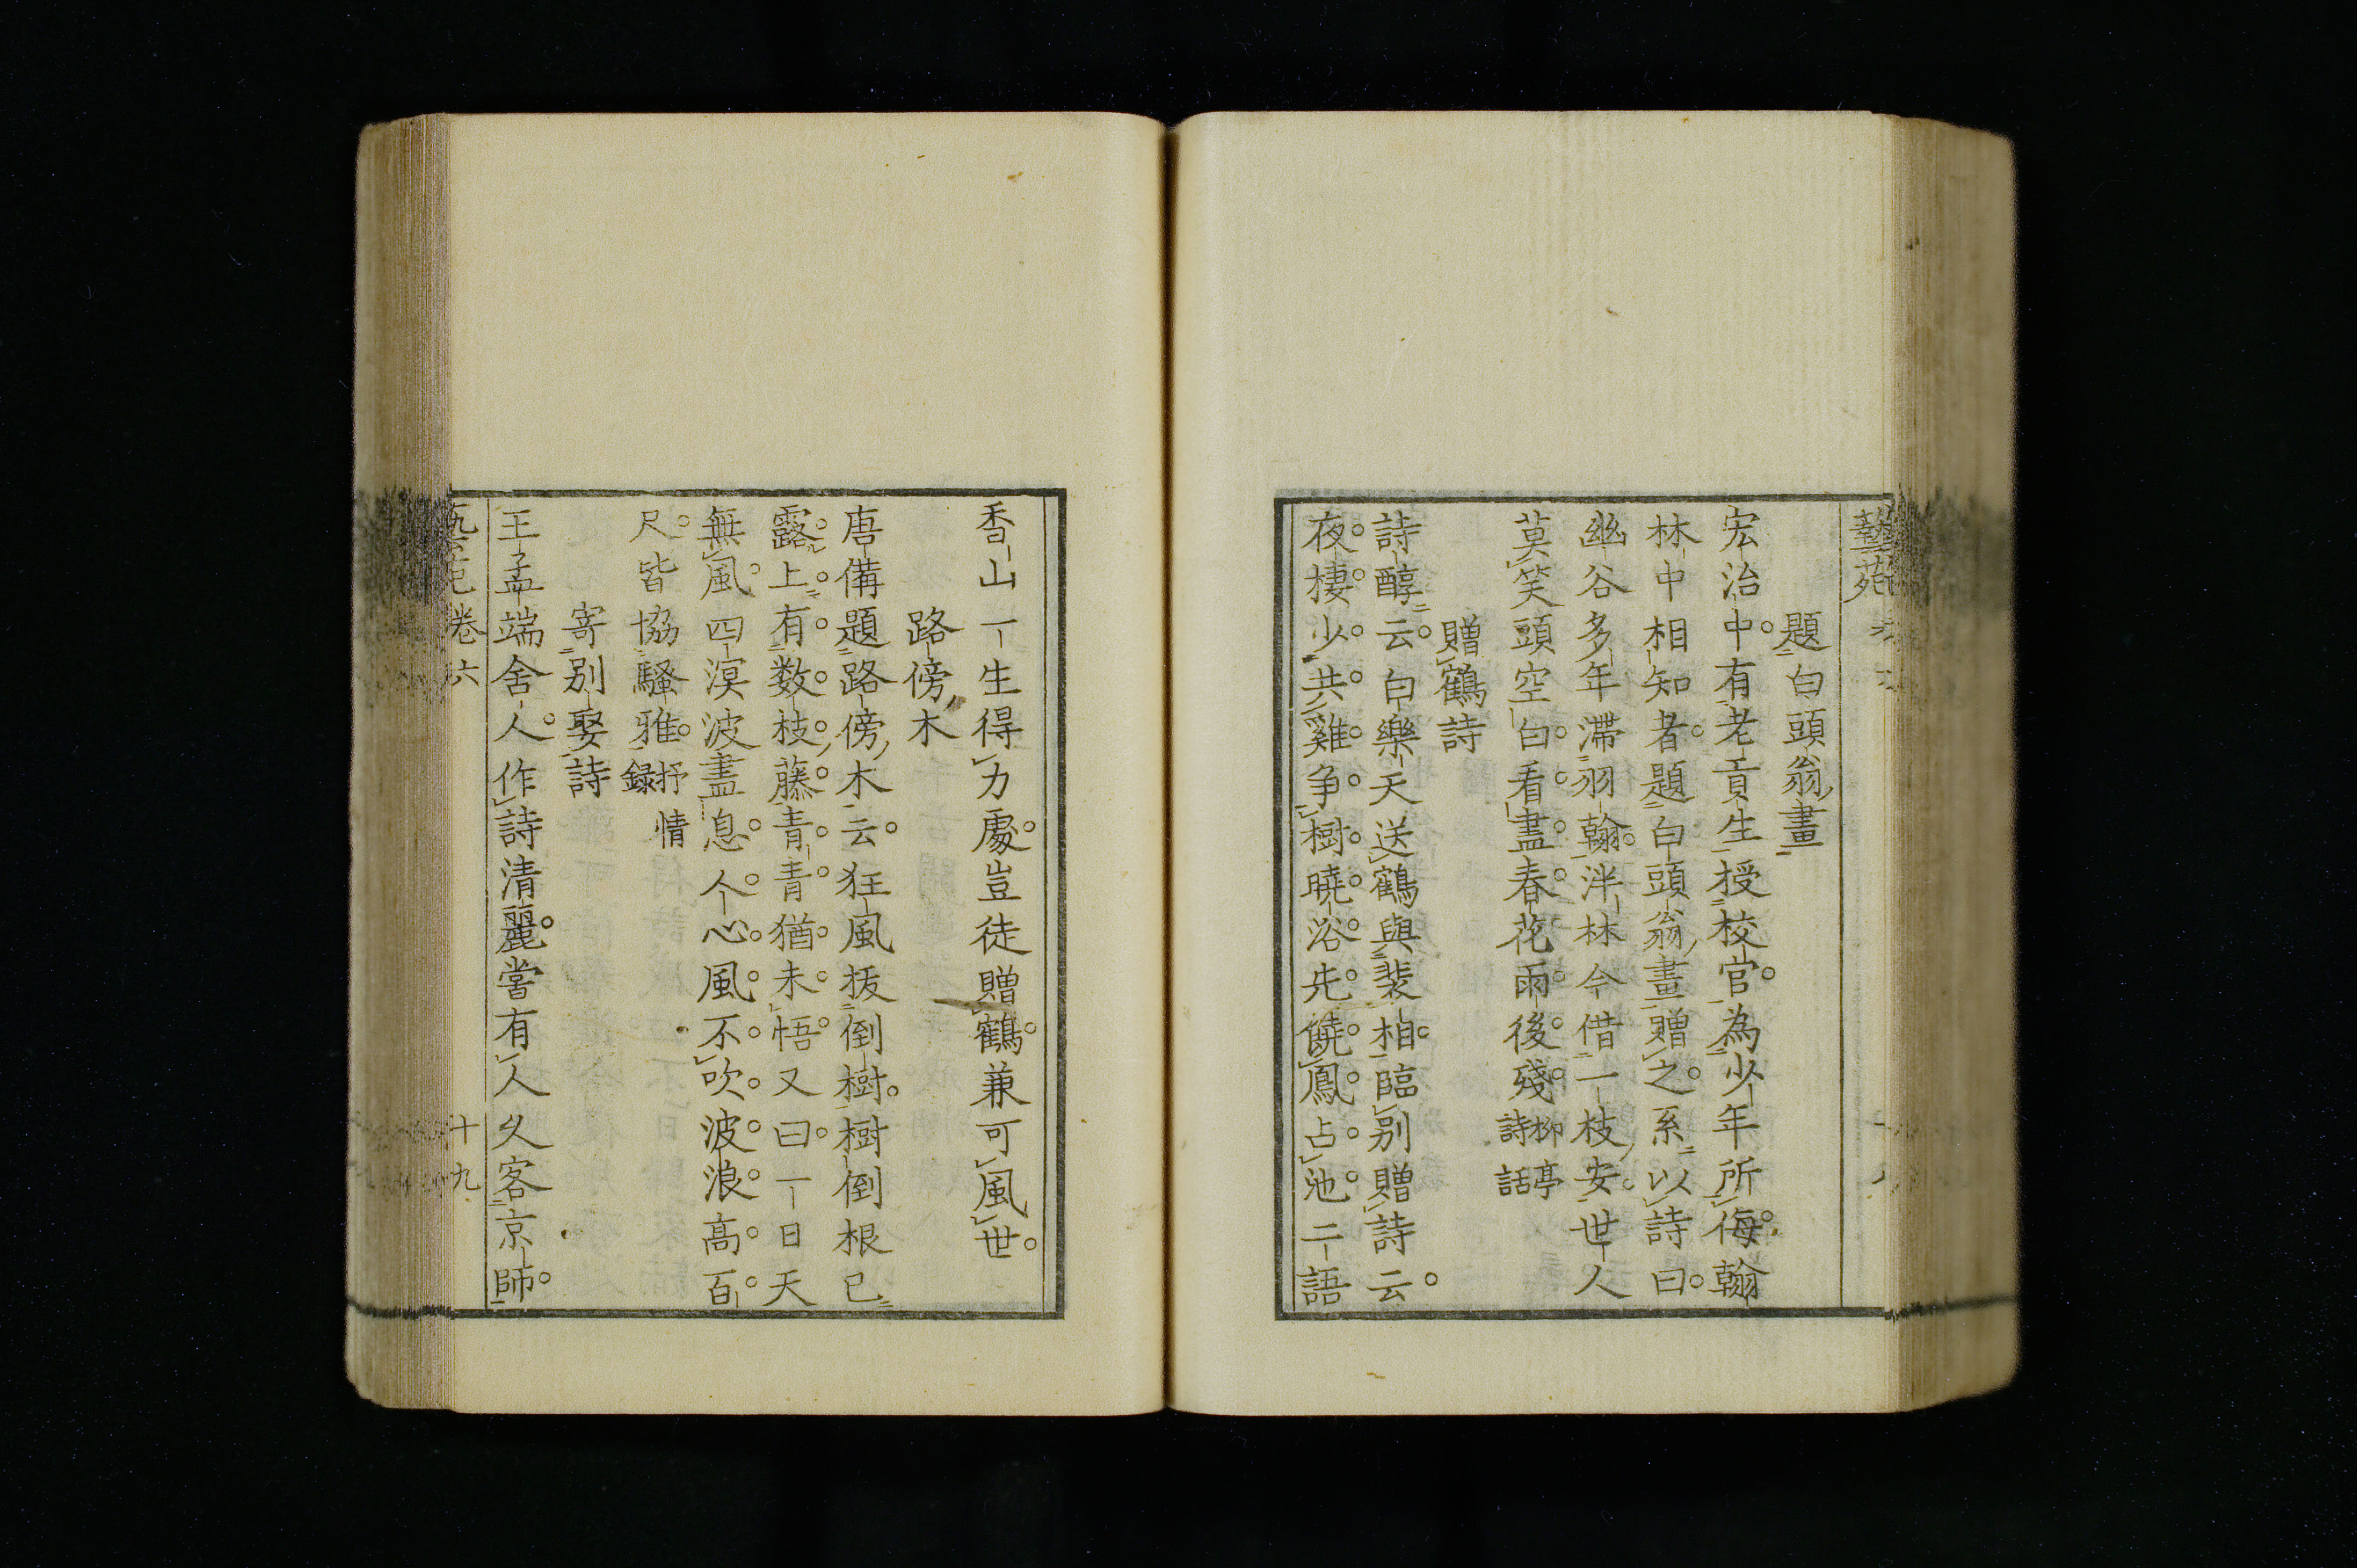 藝苑
題白頭翁畫
宏治中有老貢生授校官為少年所侮翰
林中相知者題白頭翁畫贈之系以詩曰
幽谷多年滯羽翰泮林今借一枝安世人
莫笑頭空白看盡春花雨後殘柳亭詩話
贈鶴詩
詩醇云白樂天送鶴與裴相臨別贈詩云
夜棲少共雞争樹曉浴先饒鳳占池二語
香山一生得力處豈徒贈鶴兼可風世
路傍木
唐備題路傍木云狂風拔倒樹樹倒根已
露上有数枝藤青青猶未悟又曰一日天
無風四溟波盡息人心風不吹波浪高百
尺皆協騷雅抒情録
寄別娶詩
王孟端舍人作詩清麗嘗有人久客京師
卷六 十九